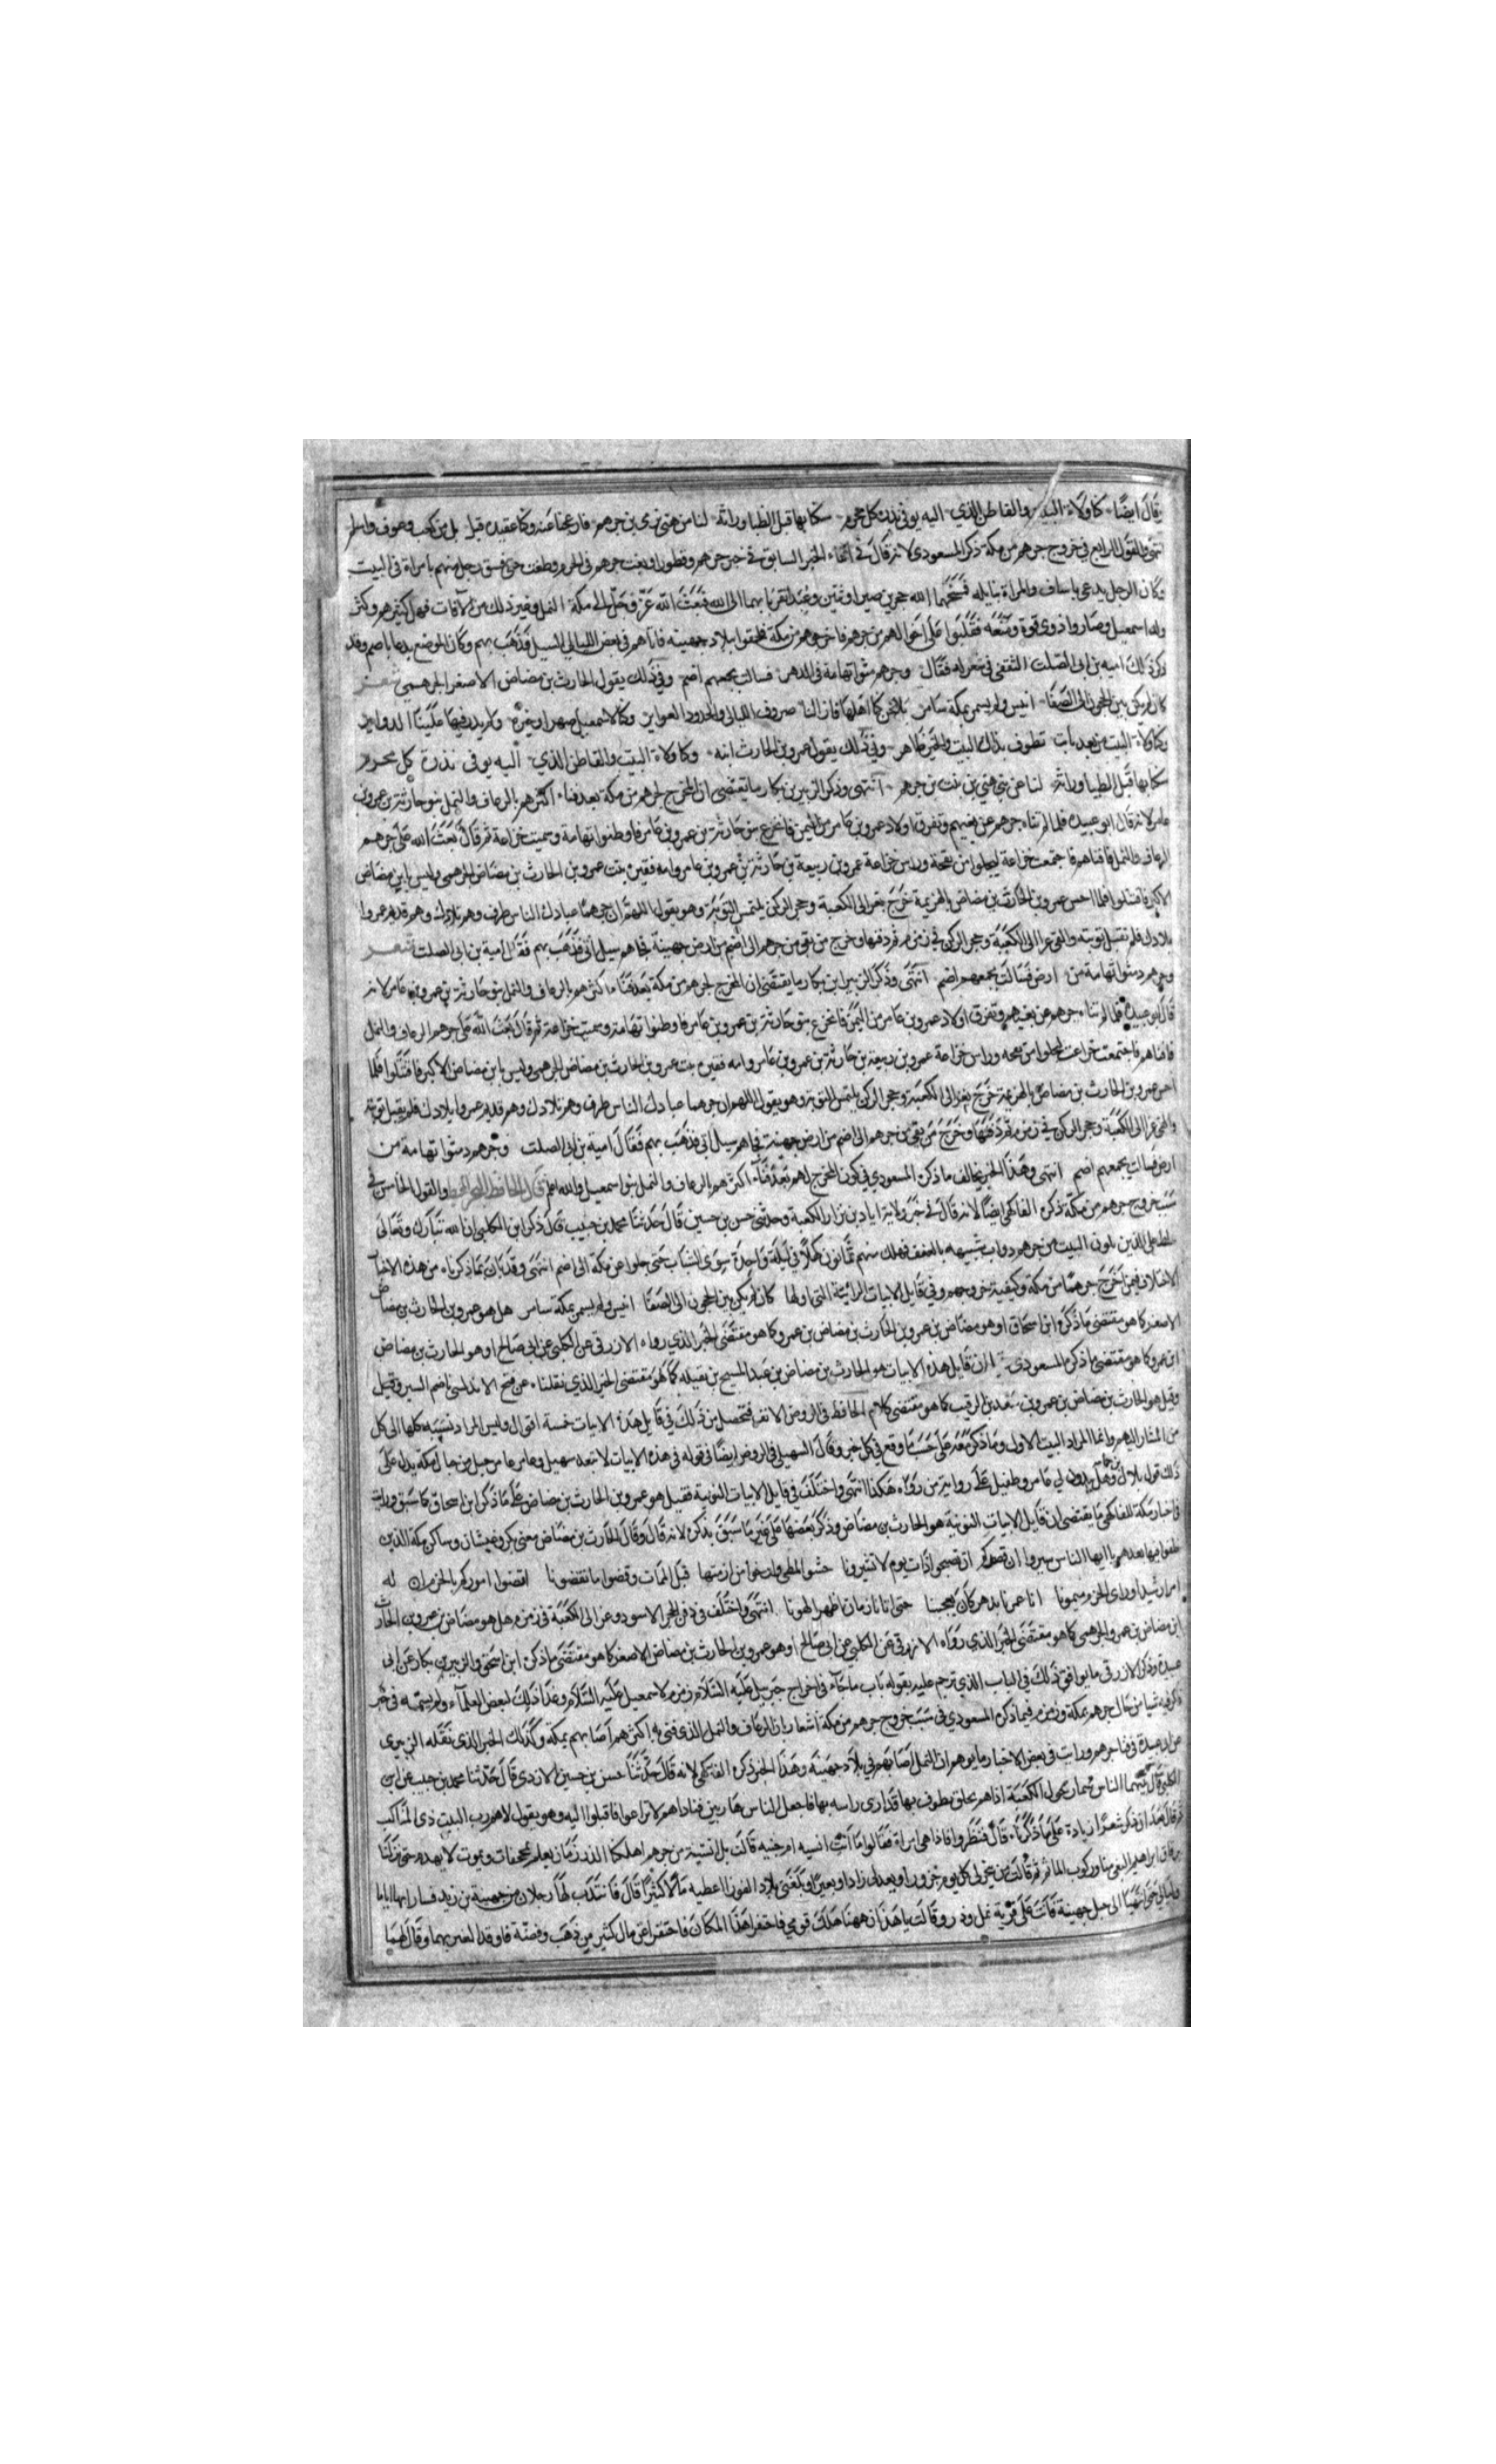 يقال ايضا وكنا ولاة البيت والقاطن الذي اليه يوفي نذره كل محرم سكنا بها قبل الظبا وراثة لنا من بني هني بن جرهم
انتهى والقول الرابع في خروج جرهم من مكة ذكره المسعودي لانه قال في اثناء الخبر السابق في خبر جرهم وقطورا وبغت جرهم في الحرم وطغت حتى فسق رجل منهم بامراة في البيت
وكان الرجل يدعى باساف والمراة بنايله فمسخهما الله حجرين صيرا وثنين وعبدا تقربا بهما الى الله فبعث الله عز وجل الى مكة النمل وغير ذلك من الآفات فهلك كثير منهم وكثر
ولد اسمعيل وصاروا ذوي قوة ومنعة فغلبوا على اخوالهم من جرهم فاخرجوهم من مكة فلحقوا ببلاد جهينة فاتاهم في بعض الليالي السيل فذهب بهم وكان الموضع يدعى باضم وقد
ذكر ذلك امية بن ابي الصلت الثقفي في شعر له فقال وجرهم دمنوا تهامة في الدهر فسالت بجمعهم اضم وفي ذلك يقول الحارث بن مضاض الاصغر الجرهمي شعر
كان لم يكن بين الحجون الى الصفا انيس ولم يسمر بمكة سامر بلى نحن كنا اهلها فازالنا صروف الليالي والجدود العواثر وكنا لاسمعيل صهرا وجيرة
وكنا ولاة البيت من بعد نابت نطوف بذاك البيت والخير ظاهر وفي ذلك يقول عمرو بن الحارث ابنه وكنا ولاة البيت والقاطن الذي اليه يوفي نذره كل محرم
سكنا بها قبل الظبا وراثة لنا عن بني هني بن نبت بن جرهم انتهى وذكر الزبير بن بكار ما يقتضي ان المخرج لجرهم من مكة بعد فناء اكثرهم بالرعاف والنمل بنو حارثة بن عمرو بن
عامر لانه قال ابو عبيدة فلما لم تتناه جرهم عن بغيهم وتفرق اولاد عمرو بن عامر من اليمن فانخزع بنو حارثة بن عمرو بن عامر فاوطنوا تهامة وسميت خزاعة ثم قال بعث الله على جرهم
الرعاف والنمل فافناهم فاجتمعت خزاعة ليجلوا من بقي وراس خزاعة عمرو بن ربيعة بن حارثة بن عمرو بن عامر وامه فهيرة بنت عمرو بن الحارث بن مضاض الجرهمي وليس بابن مضاض
الاكبر فاقتتلوا فلما احس عمرو بن الحارث بن مضاض بالهزيمة خرج بغزالي الكعبة وحجر الركن يلتمس التوبة وهو يقول اللهم ان جرهما عبادك الناس طرف وهم تلادك وهم قديما عمروا
بلادك فلم تقبل توبته والقى غزالي الكعبة وحجر الركن في زمزم ثم دفنها وخرج من بقي من جرهم الى اضم من ارض جهينة فجاهم سيل اتي فذهب بهم فقال امية بن ابي الصلت شعر
وجرهم دمنوا تهامة من ارض فسالت بجمعهم اضم انتهى وذكر الزبير ابن بكار ما يقتضي ان المخرج لجرهم من مكة بعد فناء اكثرهم بالرعاف والنمل بنو حارثة بن عمرو بن عامر لانه
قال ابو عبيدة فلما لم تتناه جرهم عن بغيهم وتفرق اولاد عمرو بن عامر من اليمن فانخزع بنو حارثة بن عمرو بن عامر فاوطنوا تهامة وسميت خزاعة ثم قال بعث الله على جرهم الرعاف والنمل
فافناهم فاجتمعت خزاعة ليجلوا من بقي وراس خزاعة عمرو بن ربيعة بن حارثة بن عمرو بن عامر وامه فهيرة بنت عمرو بن الحارث بن مضاض الجرهمي وليس بابن مضاض الاكبر فاقتتلوا فلما
احس عمرو بن الحارث بن مضاض بالهزيمة خرج بغزالي الكعبة وحجر الركن يلتمس التوبة وهو يقول اللهم ان جرهما عبادك الناس طرف وهم تلادك وهم قديما عمروا بلادك فلم يقبل توبته
والقى غزالي الكعبة وحجر الركن في زمزم ثم دفنها وخرج من بقي من جرهم الى اضم من ارض جهينة فجاهم سيل اتي فذهب بهم فقال امية بن ابي الصلت وجرهم دمنوا تهامة من
ارض فسالت بجمعهم اضم انتهى وهذا الخبر يخالف ما ذكره المسعودي في كون المخرج لهم بعد فناء اكثرهم بالرعاف والنمل بنوا اسمعيل والله اعلم قال الحافظ والقول الخامس في
سبب خروج جرهم من مكة ذكره الفاكهي ايضا لانه قال في خبر ولاية اياد بن نزار الكعبة وحدثني حسن بن حسين قال حدثنا محمد بن حبيب قال ذكر ابن الكلبي ان الله تبارك وتعالى
سلط على الذين يلون البيت من جرهم دواب شبيهه بالنغف فهلك منهم ثمانون كهلا في ليلة واحدة سوى الشباب حتى جلوا من مكة الى اضم انتهى وقد بان بما ذكرناه من هذه الاخبار
الاختلاف فيمن اخرج جرهما من مكة وكيفية خروجهم وفي قايل الابيات الرائية التي اولها كان لم يكن بين الحجون الى الصفا انيس ولم يسمر بمكة سامر هل هو عمرو بن الحارث بن مضاض
الاصغر كما هو مقتضى ما ذكره ابن اسحاق او هو مضاض بن عمرو بن الحارث بن مضاض بن عمرو كما هو مقتضى الخبر الذي رواه الازرقي عن الكلبي عن ابي صالح او هو الحارث بن مضاض
ابن عمرو كما هو مقتضى ما ذكره المسعودي او ان قايل هذه الابيات هو الحارث بن مضاض بن عبد المسيح بن نفيله كما هو مقتضى الخبر الذي نقلناه عن فتح الاندلسي وقيل
وقيل هو الحارث بن مضاض بن عمرو بن سعد بن الرقيب كما هو مقتضى كلام الحافظ في الروض الانف فتحصل من ذلك في قايل هذه الابيات خمسة اقوال وليس المراد نسبته كلها الى كل
من المشار اليهم وانما المراد البيت الاول وما ذكر معه على حسب ما وقع في كل خبر وقال السهيلي في الروض ايضا في قوله في هذه الابيات لا تبعد سهيل وعامر عامر جبل من جبال مكة يدل على
ذلك قول بلال وهل يبدون لي عامر وطفيل على رواية من رواه هكذا انتهى واختلف في قايل الابيات النونية فقيل هو عمرو بن الحارث بن مضاض على ما ذكر ابن اسحاق كما سبق ورايت
في اخبار مكة للفاكهي ما يقتضي ان قايل الابيات النونية هو الحارث بن مضاض وذكر بعضها على غير ما سبق بذكره لانه قال وقال الحارث بن مضاض يعني بكر وغبشان وساكن مكة الذين
خلفوا فيها بعدهم يا ايها الناس سيروا ان قصركم ان تصبحوا ذات يوم لا تسيرونا حثوا المطي وارخوا من ازمتها قبل الممات وقضوا ما تقضونا اقضوا اموركم بالحزم ان له
امر رشيد اولى الحزم ميمونا انا عمرنا بدهر كان يعجبنا حتى اتانا زمان اظهر الهونا انتهى واختلف في دفن الحجر الاسود وغزالي الكعبة في زمزم هل هو مضاض بن عمرو بن الحارث
ابن مضاض بن عمرو الجرهمي كما هو مقتضى الخبر الذي رواه الازرقي عن الكلبي عن ابي صالح او هو عمرو بن الحارث بن مضاض الاصغر كما هو مقتضى ما ذكره ابن اسحق والزبير بن بكار عن ابي
عبيدة وذكر الازرقي ما يوافق ذلك في الباب الذي ترجم عليه بقوله باب ما جاء في اخراج جبريل عليه السلام زمزم لاسمعيل عليه السلام وعزا ذلك لبعض العلماء ولم يسمه في خبر
ذكر فيه شيا من حال جرهم بمكة وزمزم فيما ذكره المسعودي في سبب خروج جرهم من مكة اشعار بان الرعاف والنمل الذي فني به اكثرهم اصابهم بمكة وكذلك الخبر الذي نقله الزبيري
عن ابي عبيدة في فنا جرهم ورايت في بعض الاخبار ما يوهم ان النمل اصابهم في بلاد جهينة وهذا الخبر ذكره الفاكهي لانه قال حدثنا حسن بن حسين الازدي قال حدثنا محمد بن حبيب عن ابن
الكلبي قال بينما الناس حول الكعبة اذا هم بخلق يطوف بها قد ارى راسه بها فاجفل الناس هاربين فناداهم لا تراعوا فاقبلوا اليه وهو يقول لاهم رب البيت ذي المناكب
ثم قال فذكر شعرا زيادة على ما ذكرناه قال فنظروا فاذا هي امراة فقالوا ما انت انسيه ام جنيه قالت بل انسية من جرهم
ثم قالت من ينحر لي كل يوم جزورا ويعد لي زادا وبعيرا ويبلغني بلاد اعطيه مالا كثيرا قال فانتدب لها رجلان من جهينة بن زيد فسارا بها اياما
وليالي حتى انتهيا الى جبل جهينة فاتت على قرية نمل وذر وقالت يا هذان ههنا هلك قومي فاحتفرا هذا المكان فاحتفرا عن مال كثير من ذهب وفضة فاوقرا بعيريهما وقال لهما